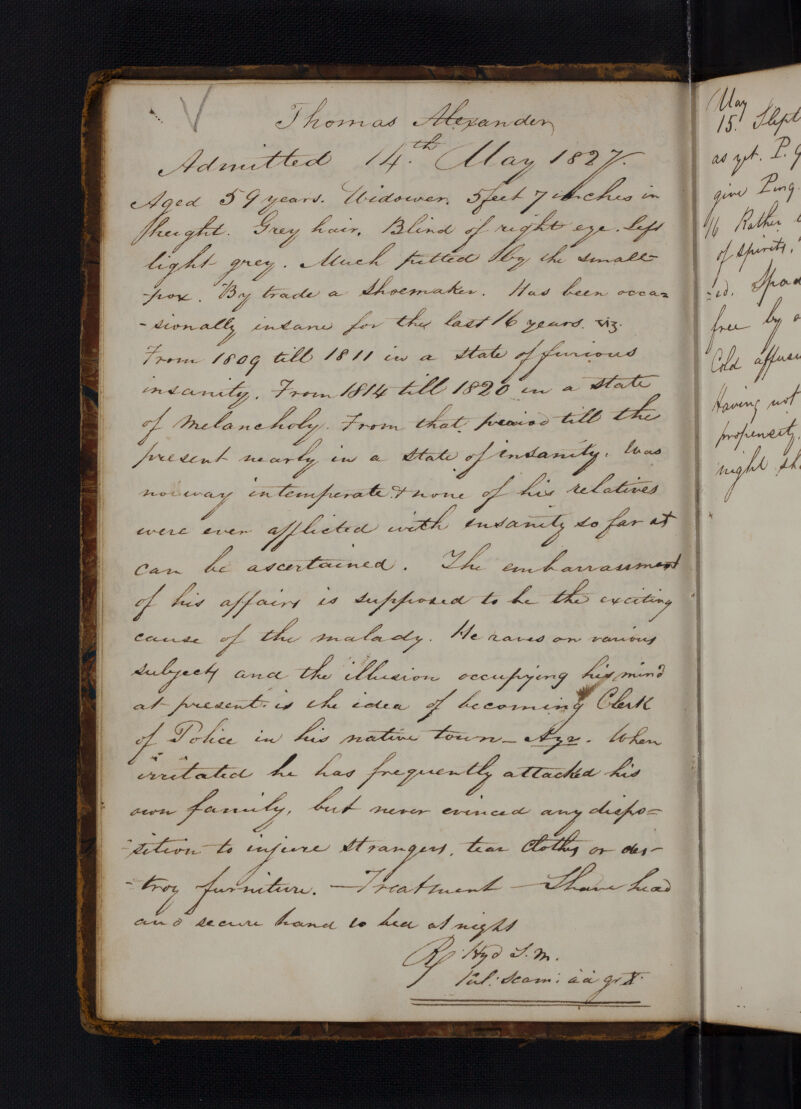 Thomas Alexander
Admitted 14.th May 1827.
Aged 59 years. Widower. 5 feet 7 inches in
height. Grey hair. Blind of right eye. left
light grey. Much pitted by the small-
-pox. By trade a Shoemaker. Has been occa=
-sionally insane for the last 16 years. viz.
From 1809 till 1811 in a state of furious
insanity. From 1814 till 1820 in a state
of Melancholy. From that period till the
present nearly in a state of insanity. Was
no way intemperate & none of his relatives
were ever afflicted with insanity so far as
can be ascertained. The embarrassment
of his affairs is supposed to be the exciting
cause of the malady. He raves on various
subjects and the illusion occupying his mind
at present is the idea of becoming Clerk
of Police in his native town - Ayr. When
irritated he has frequently attacked his
own family, but never evinced any dispo=
-sition to injure strangers, tear clothes or des-
-troy furniture. — Treatment — Shave head
and secure hand to bed at night
Hyd S. M.
Pul: Scam: aa gr X.
May
15. Slept
as yet. P.
give Purg.
16 Rather
of spirits.
free by
Cold affus
Having not
propensity
night